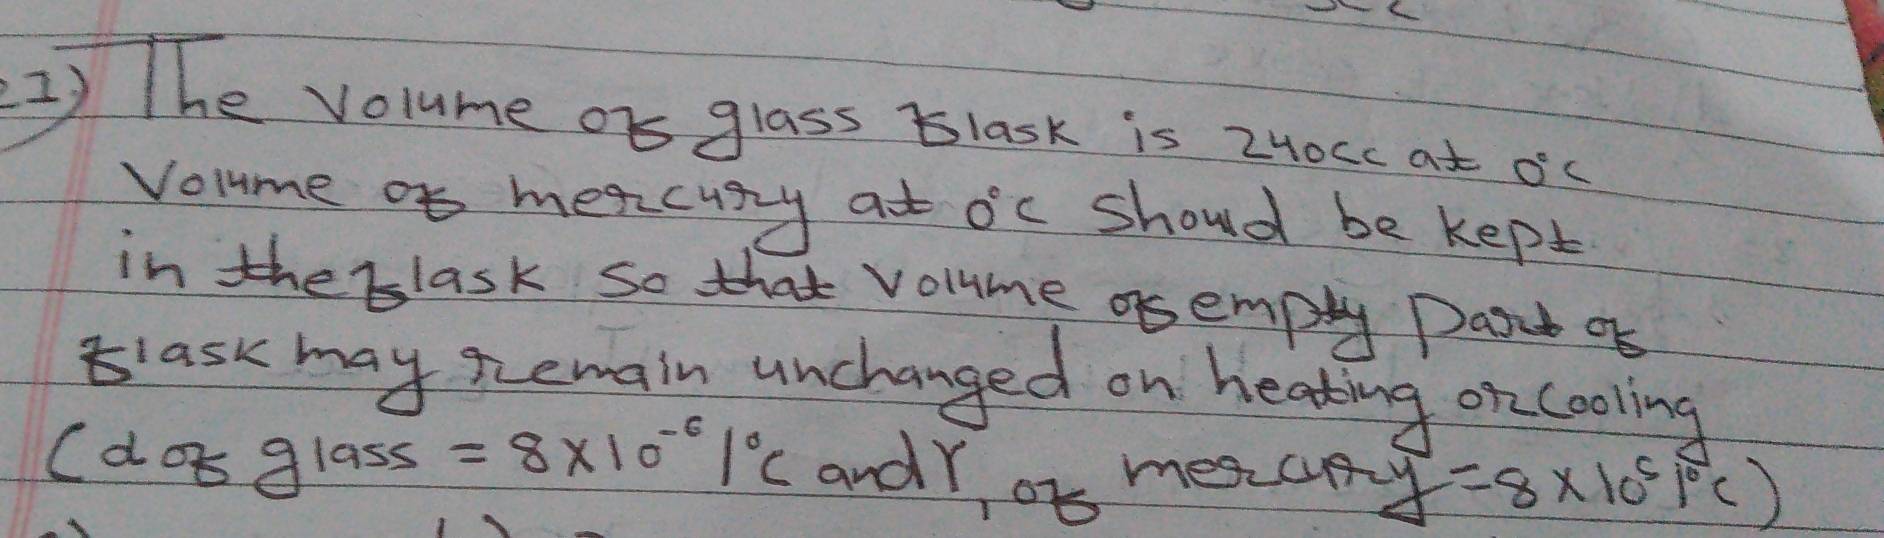 21) The Volume of glass flask is 240cc at 0°C
Volume of mercury at 0°C should be kept
in the flask so that volume of empty part of
flask may remain unchanged on heating or cooling
(α of glass = 8×10⁻⁶/°C and γ, of mercury = 8×10⁵/°C)